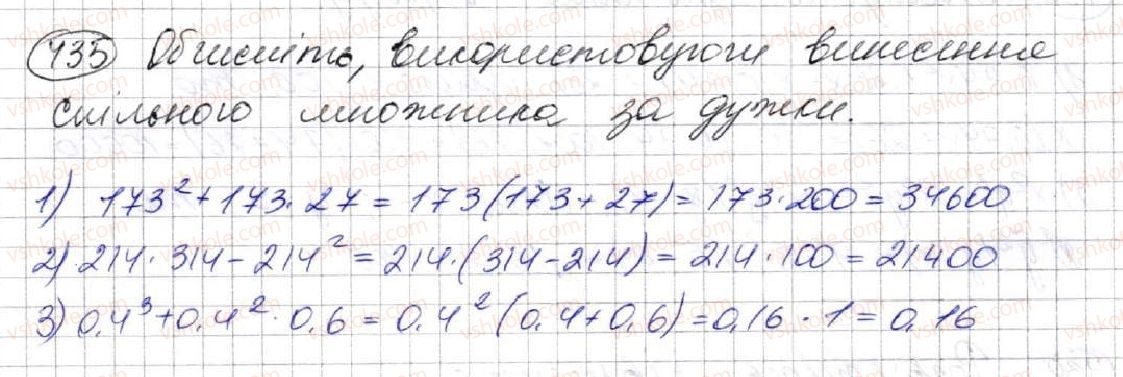 435 Обчисліть, використовуючи винесення
спільного множника за дужки.
1) 173² + 173 · 27 = 173 (173 + 27) = 173 · 200 = 34600
2) 214 · 314 - 214² = 214 · (314 - 214) = 214 · 100 = 21400
3) 0,4³ + 0,4² · 0,6 = 0,4² (0,4 + 0,6) = 0,16 · 1 = 0,16